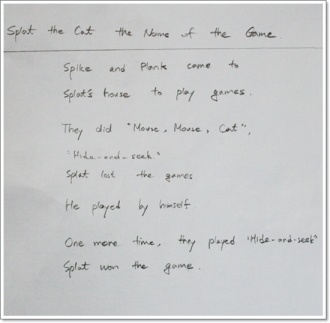 Splat the Cat the Name of the Game.
Spike and Plank came to
Splat's house to play games.
They did "Mouse, Mouse, Cat",
"Hide-and-seek"
Splat lost the games
He played by himself
One more time, they played "Hide-and-seek"
Splat won the game.